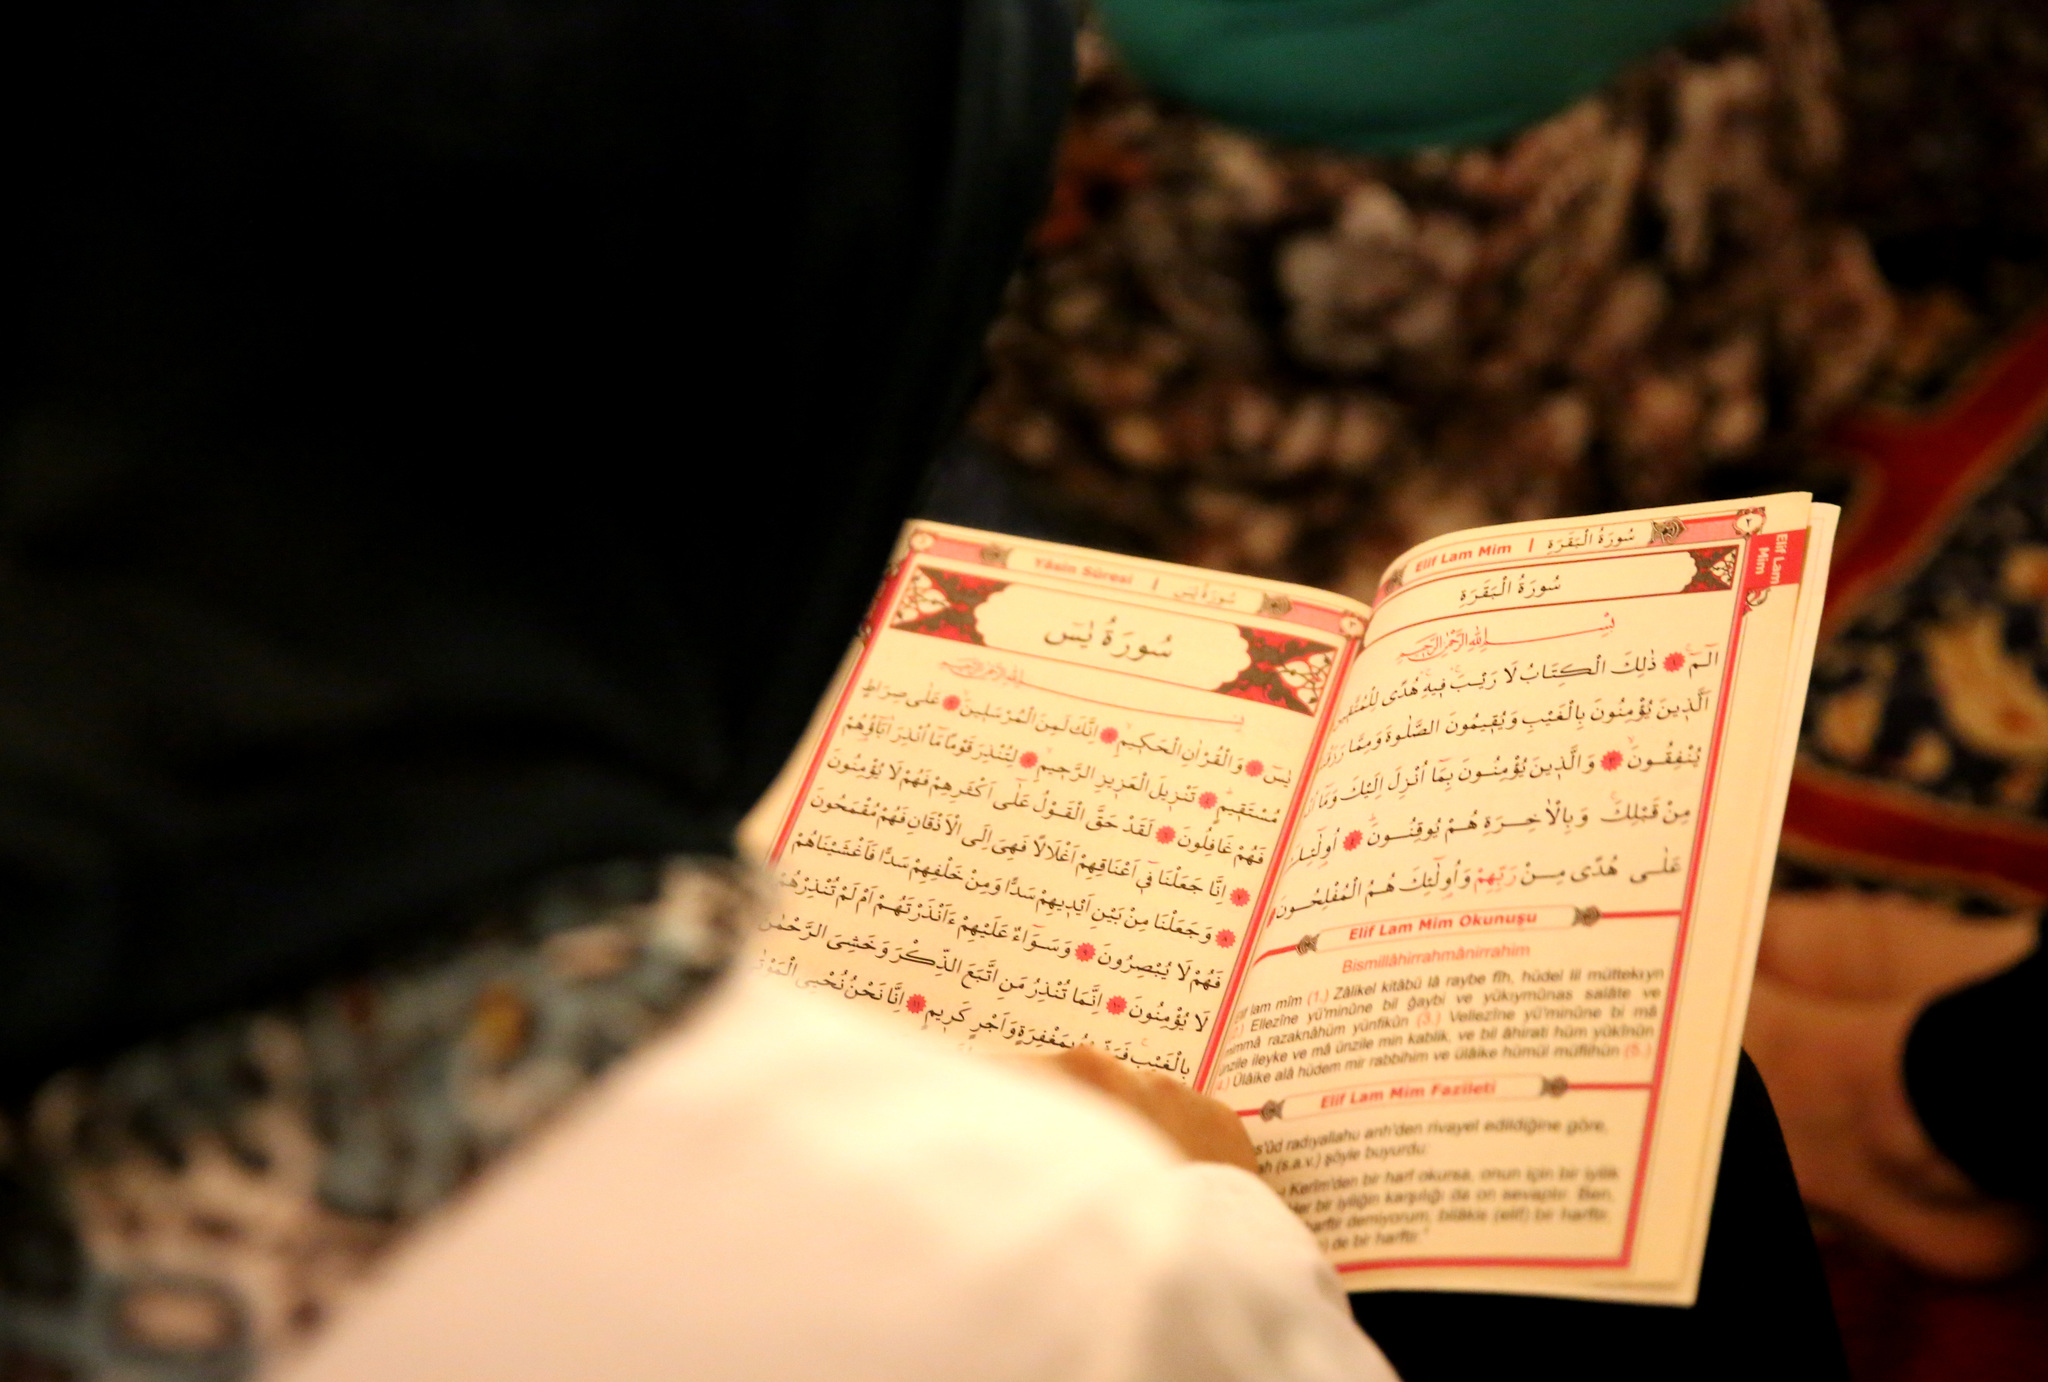 Elif Lam Mim | سُورَةُ الْبَقَرَةِ
٢
Elif Lam
Mim
سُورَةُ الْبَقَرَةِ
بِسْمِ اللهِ الرَّحْمٰنِ الرَّحِيمِ
الٓمٓ ۚ ١ ذٰلِكَ الْكِتَابُ لَا رَيْبَ ۚ فِيهِ ۚ هُدًى لِلْمُتَّقِينَ
اَلَّذِينَ يُؤْمِنُونَ بِالْغَيْبِ وَيُقِيمُونَ الصَّلٰوةَ وَمِمَّا
يُنْفِقُونَ ۙ ٣ وَالَّذِينَ يُؤْمِنُونَ بِمَٓا اُنْزِلَ اِلَيْكَ وَمَٓا
مِنْ قَبْلِكَ ۚ وَبِالْاٰخِرَةِ هُمْ يُوقِنُونَ ۜ ٤ اُو۬لٰٓئِكَ
عَلٰى هُدًى مِنْ رَبِّهِمْ وَاُو۬لٰٓئِكَ هُمُ الْمُفْلِحُونَ
Elif Lam Mim Okunuşu
Bismillâhirrahmânirrahim
lam mîm (1.) Zâlikel kitâbü lâ raybe fîh, hüdel lil müttekıyn
Ellezîne yü'minûne bil ğaybi ve yükıymûnas salâte ve
mimmâ razaknâhüm yünfikûn (3.) Vellezîne yü'minûne bi mâ
ünzile ileyke ve mâ ünzile min kablik, ve bil âhirati hüm yûkinûn
4.) Ülâike alâ hüdem mir rabbihim ve ülâike hümül müflihûn (5.)
Elif Lam Mim Fazileti
s'ûd radıyallahu anh'den rivayet edildiğine göre,
ah (s.a.v.) şöyle buyurdu:
Kerîm'den bir harf okursa, onun için bir iyilik
Her bir iyiliğin karşılığı da on sevaptır. Ben,
harftir demiyorum, bilâkis (elif) bir harftir,
de bir harftir."
Yâsin Sûresi | سُورَةُ يٰسٓ
سُورَةُ يٰسٓ
بِسْمِ اللهِ الرَّحْمٰنِ الرَّحِيمِ
يٰسٓ ١ وَالْقُرْاٰنِ الْحَكِيمِ ۙ ٢ اِنَّكَ لَمِنَ الْمُرْسَلِينَ ۙ ٣ عَلٰى صِرَاطٍ
مُسْتَقِيمٍ ۜ ٤ تَنْزِيلَ الْعَزِيزِ الرَّحِيمِ ۙ ٥ لِتُنْذِرَ قَوْمًا مَٓا اُنْذِرَ اٰبَٓاؤُ۬هُمْ
فَهُمْ غَافِلُونَ ٦ لَقَدْ حَقَّ الْقَوْلُ عَلٰٓى اَكْثَرِهِمْ فَهُمْ لَا يُؤْمِنُونَ
٧ اِنَّا جَعَلْنَا ف۪ٓي اَعْنَاقِهِمْ اَغْلَالًا فَهِيَ اِلَى الْاَذْقَانِ فَهُمْ مُقْمَحُونَ
٨ وَجَعَلْنَا مِنْ بَيْنِ اَيْدِيهِمْ سَدًّا وَمِنْ خَلْفِهِمْ سَدًّا فَاَغْشَيْنَاهُمْ
فَهُمْ لَا يُبْصِرُونَ ٩ وَسَوَٓاءٌ عَلَيْهِمْ ءَاَنْذَرْتَهُمْ اَمْ لَمْ تُنْذِرْهُمْ
لَا يُؤْمِنُونَ ١٠ اِنَّمَا تُنْذِرُ مَنِ اتَّبَعَ الذِّكْرَ وَخَشِيَ الرَّحْمٰنَ
بِالْغَيْبِ ۚ بِمَغْفِرَةٍ وَاَجْرٍ كَرِيمٍ ١١ اِنَّا نَحْنُ نُحْيِي الْمَوْتٰى